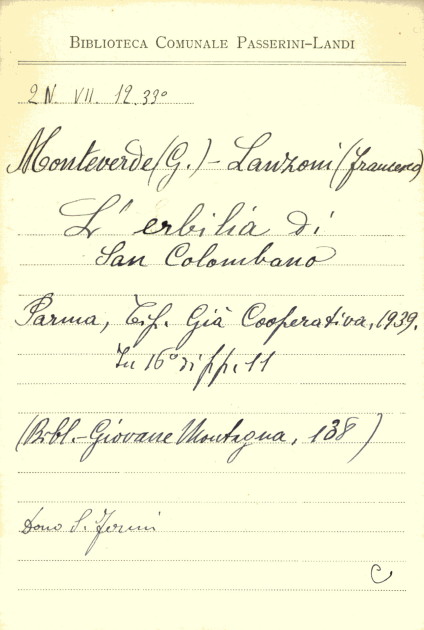 BIBLIOTECA COMUNALE PASSERINI-LANDI
2 N. VII. 12.33°
Monteverde (G.) - Lanzoni (Francesco)
L' erbilia di
San Colombano
Parma, Tip. Già Cooperativa, 1939.
In 16° di pp. 11
(Bibl. - Giovane Montagna, 138)
Dono S. Fermi
C